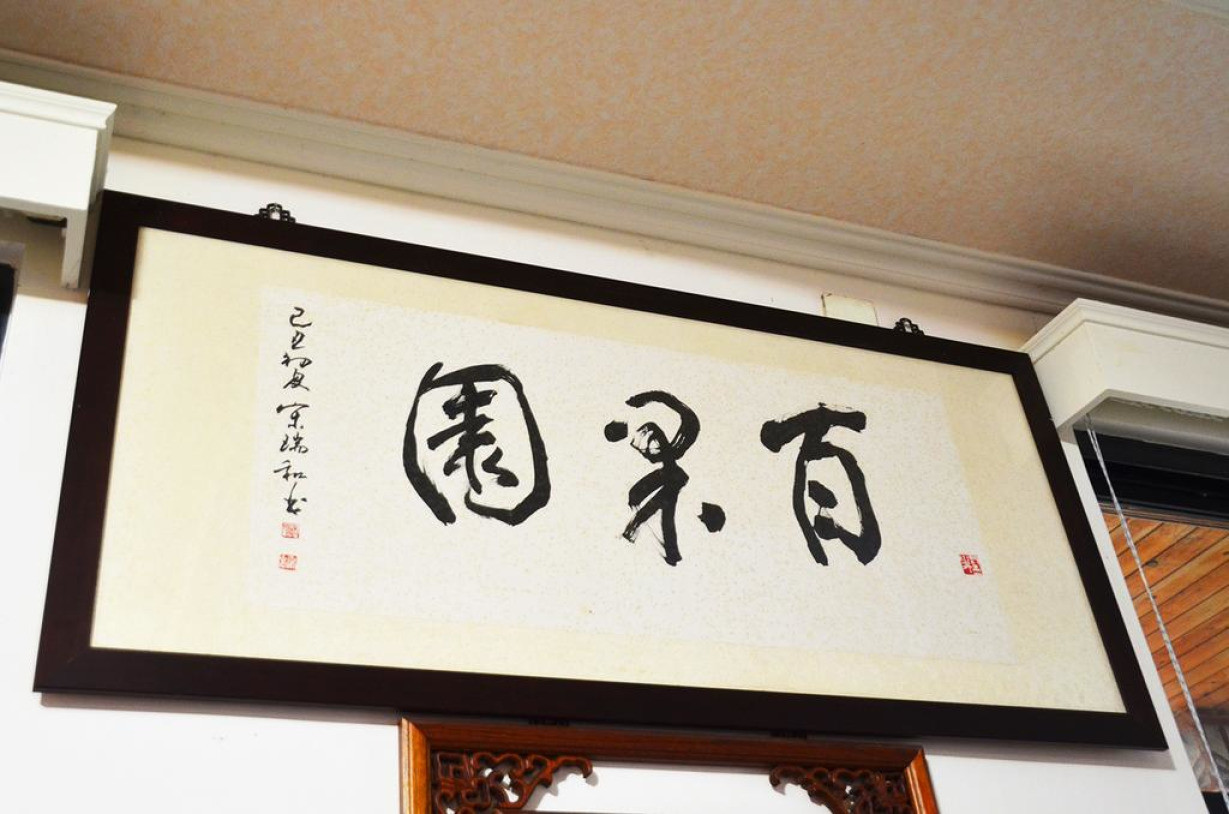 百果園
己丑初夏宋瑞和书